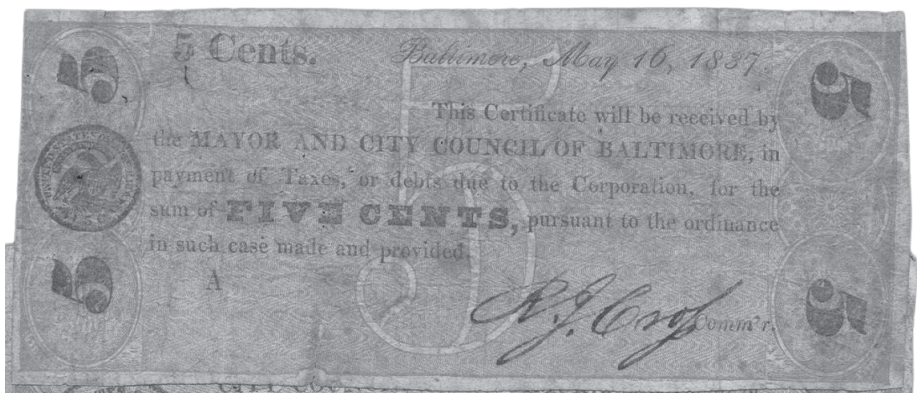 5 Cents. Baltimore, May 16, 1837.
This Certificate will be received by
the MAYOR AND CITY COUNCIL OF BALTIMORE, in
payment of Taxes, or debts due to the Corporation, for the
sum of FIVE CENTS, pursuant to the ordinance
in such case made and provided.
A
Comm'r.
5
5
5
5
5